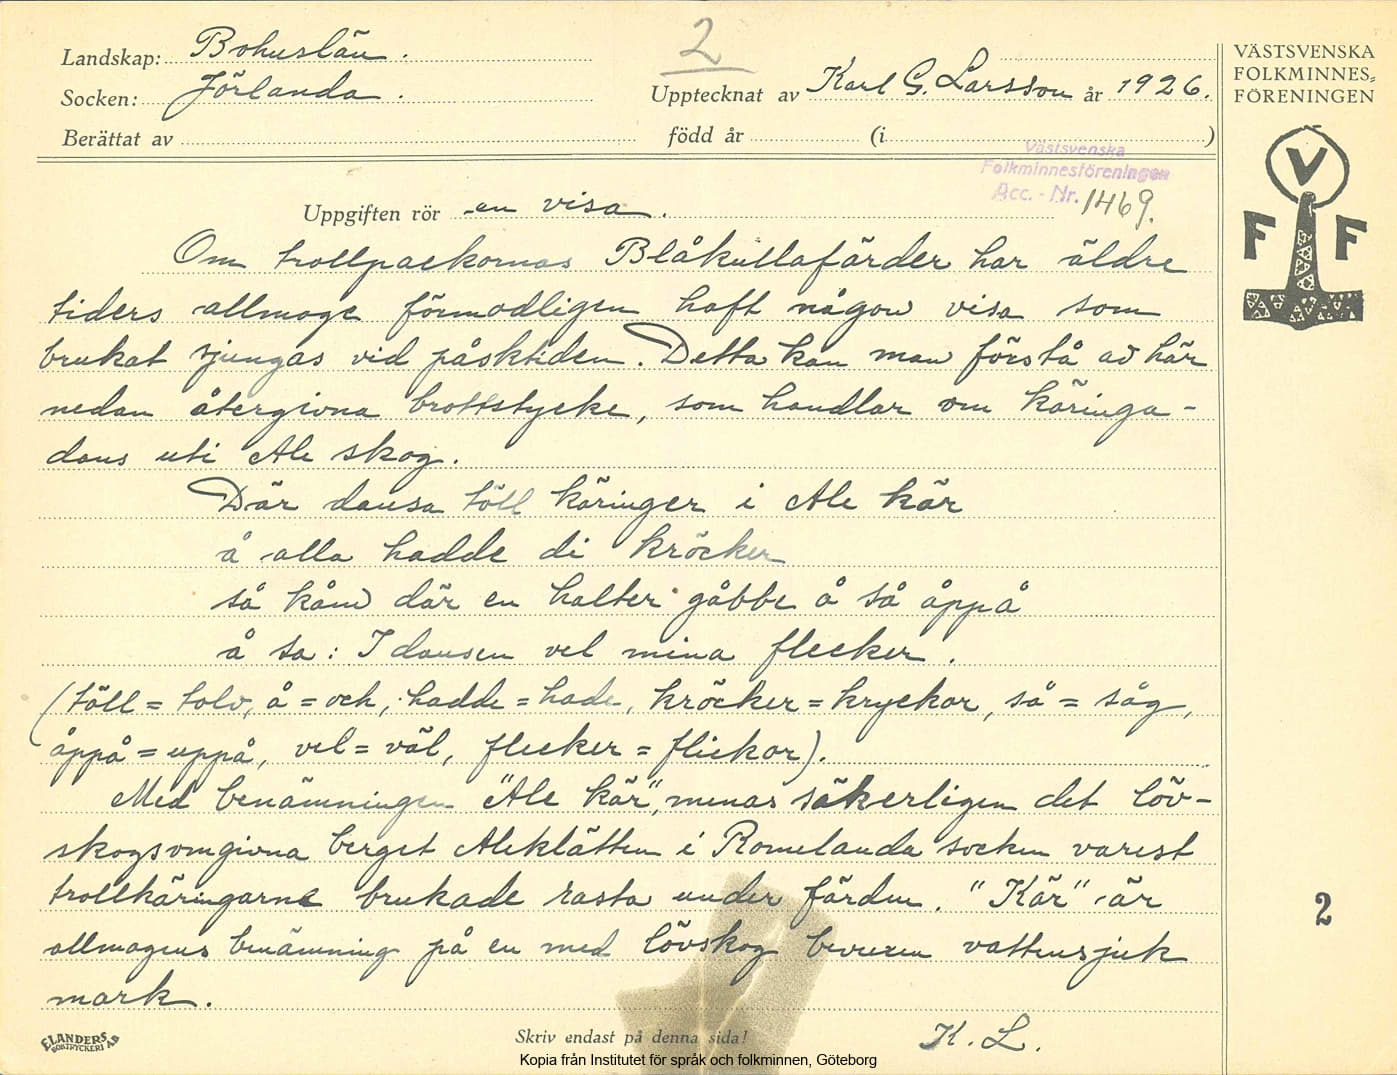 Landskap: Bohuslän.
Socken: Jörlanda.
Berättat av
2
Upptecknat av Karl G. Larsson år 1926.
född år (i )
VÄSTSVENSKA
FOLKMINNES-
FÖRENINGEN
V
F F
Västsvenska
Folkminnesföreningen
Acc. - Nr. 1469.
Uppgiften rör en visa.
Om trollpackornas Blåkullafärder har äldre
tiders allmoge förmodligen haft någon visa som
brukat sjungas vid påsktiden. Detta kan man förstå av här
nedan återgivna brottstycke, som handlar om käringa-
dans uti Ale skog.
Där dansa töll käringer i Ale kär
å alla hadde di kröcker
så kåm där en halter gåbbe å så åppå
å sa: I dansen vel mina flecker.
(töll = tolv, å = och, hadde = hade, kröcker = kryckor, så = såg,
åppå = uppå, vel = väl, flecker = flickor).
Med benämningen "Ale kär", menas säkerligen det löv-
skogsomgivna berget Aleklätten i Romelanda socken varest
trollkäringarne brukade rasta under färden. "Kär" är
allmogens benämning på en med lövskog bevuxen vattensjuk
mark.
2
K. L.
ELANDERS
BOKTRYCKERI AB
Skriv endast på denna sida!
Kopia från Institutet för språk och folkminnen, Göteborg